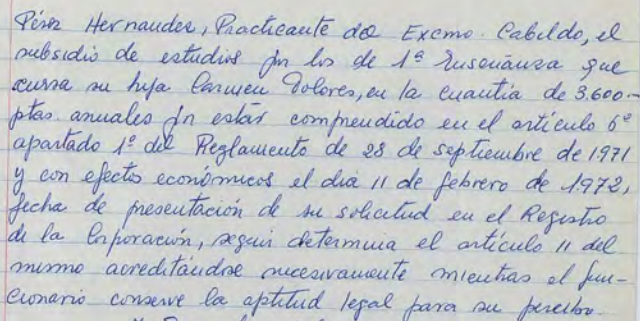 Pérez Hernandez, Practicante del Excmo. Cabildo, el
subsidio de estudios por los de 1ª Enseñanza que
cursa su hija Carmen Dolores, en la cuantía de 3.600.-
ptas. anuales por estar comprendido en el artículo 6º
apartado 1º del Reglamento de 28 de septiembre de 1971
y con efectos económicos el día 11 de febrero de 1972,
fecha de presentación de su solicitud en el Registro
de la Corporación, según determina el artículo 11 del
mismo acreditándose sucesivamente mientras el fun-
cionario conserve la aptitud legal para su percibo.